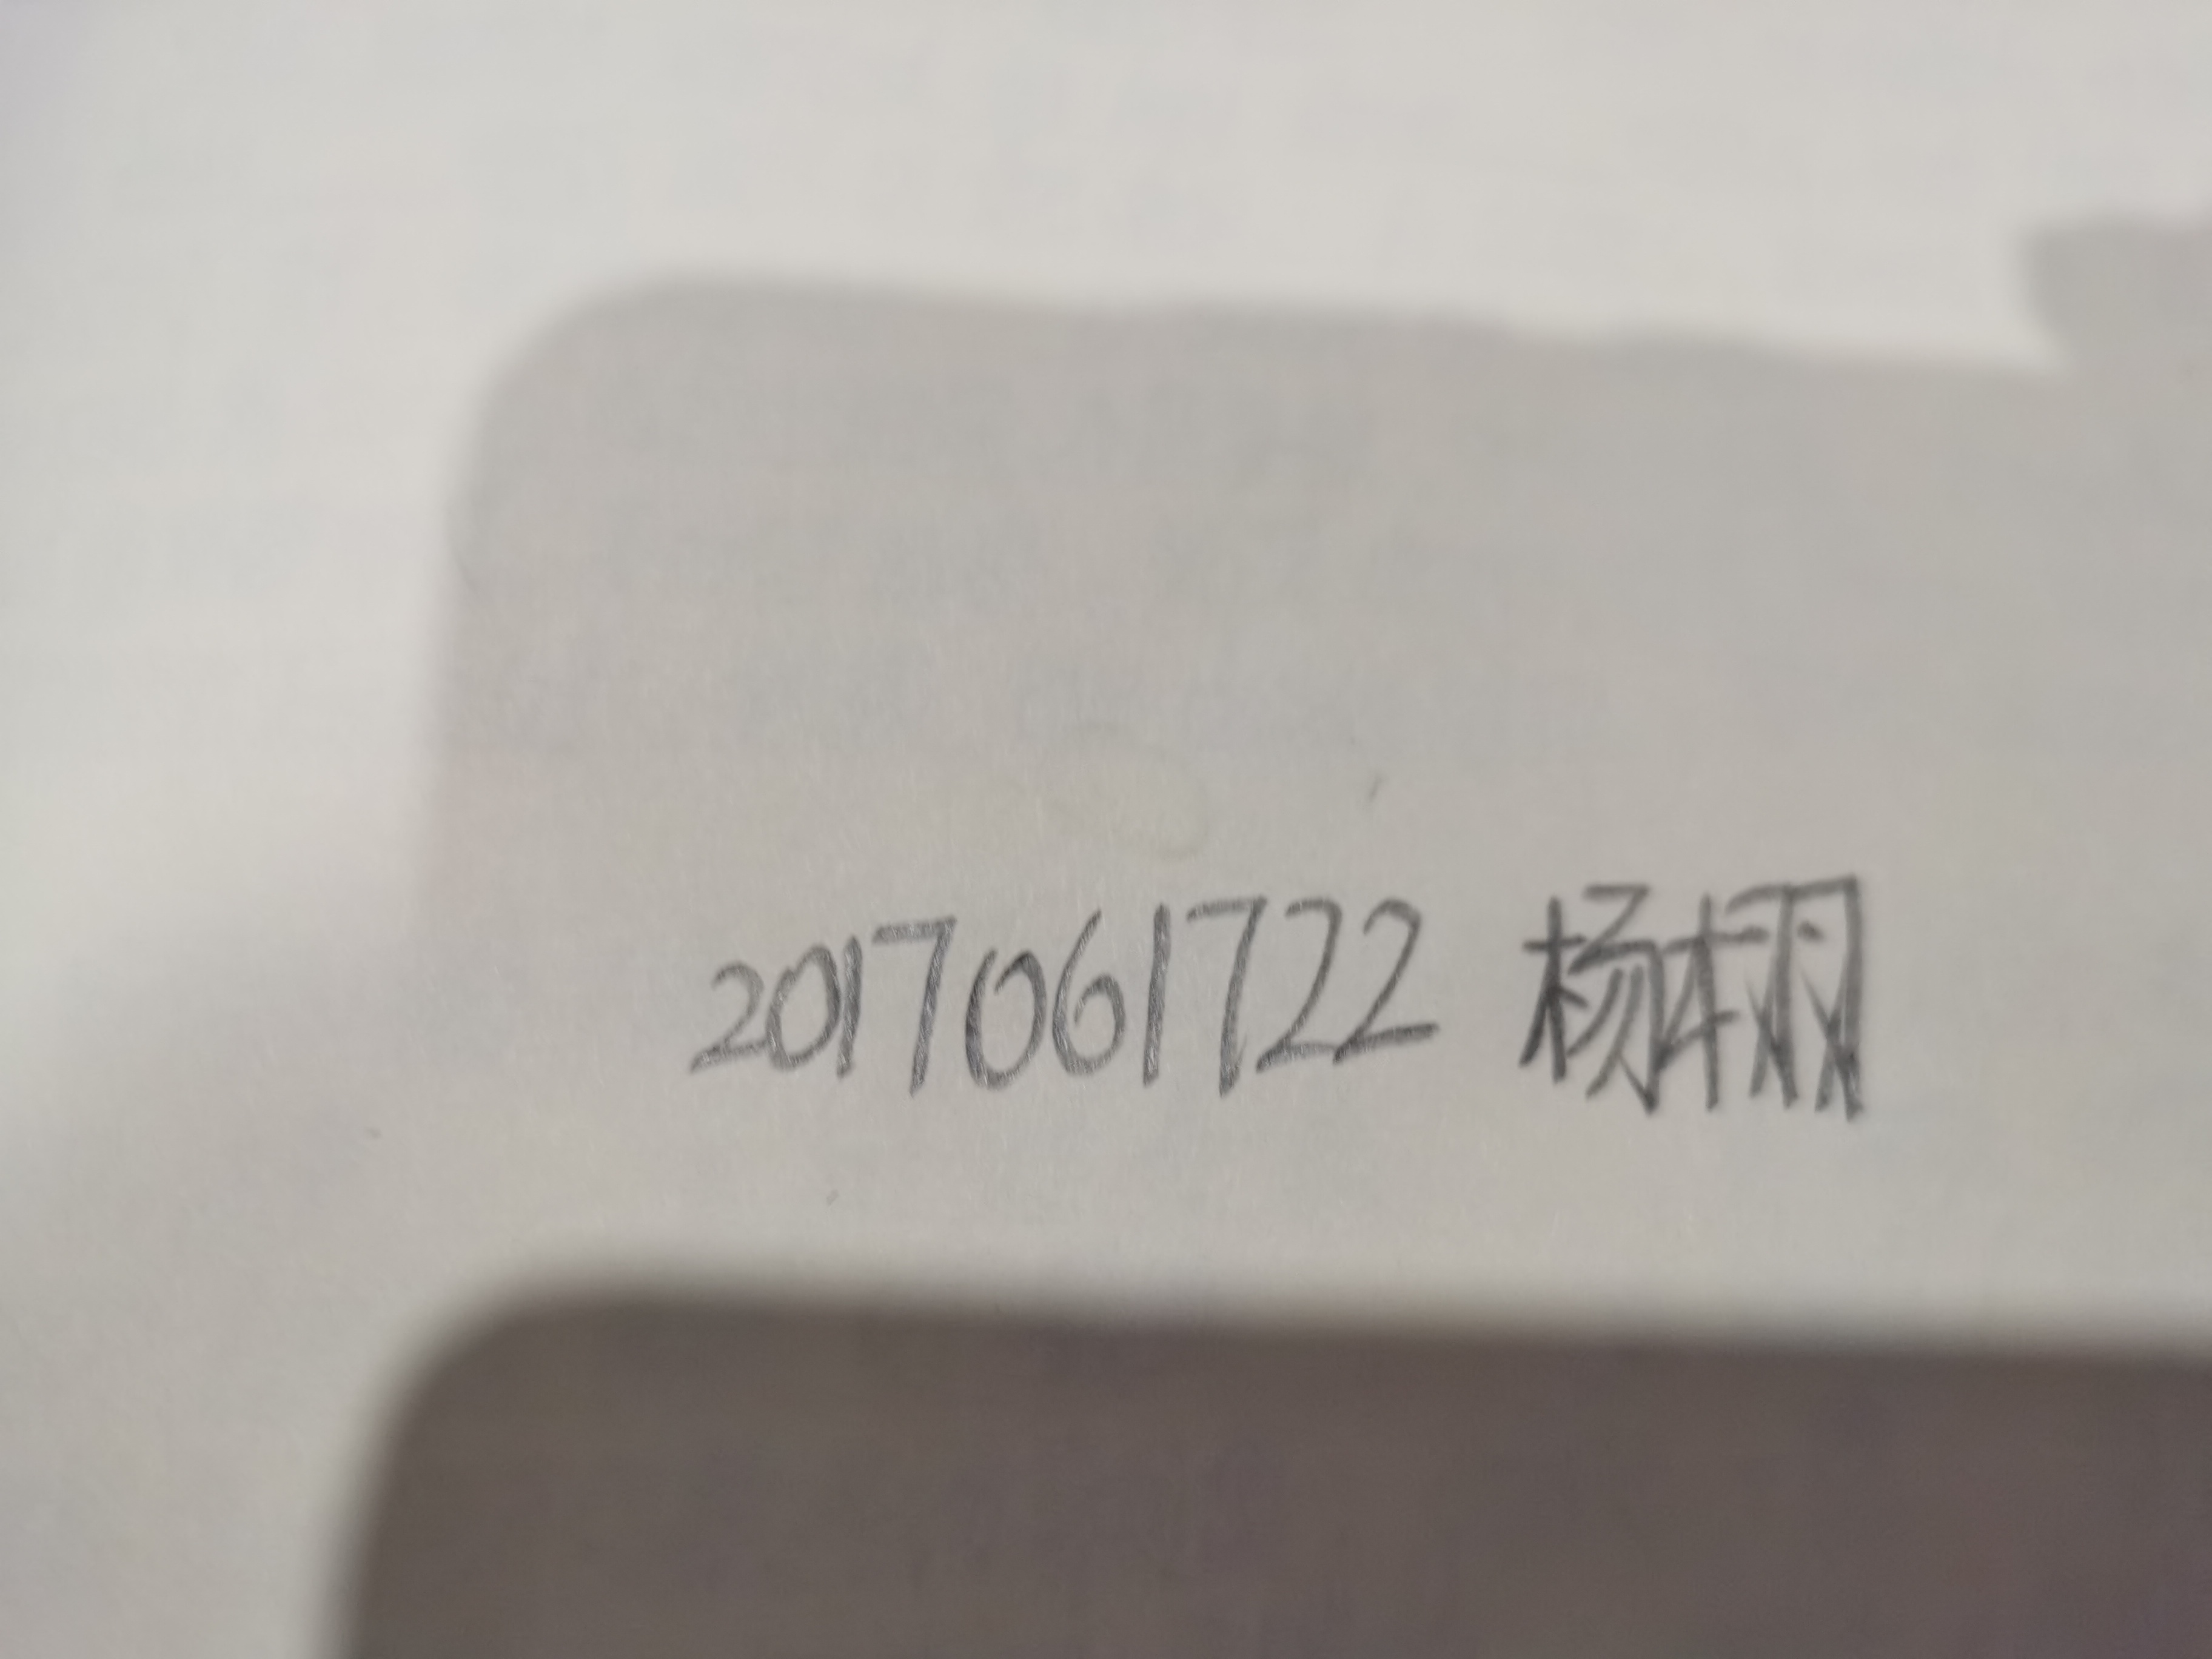 2017061722 杨栩